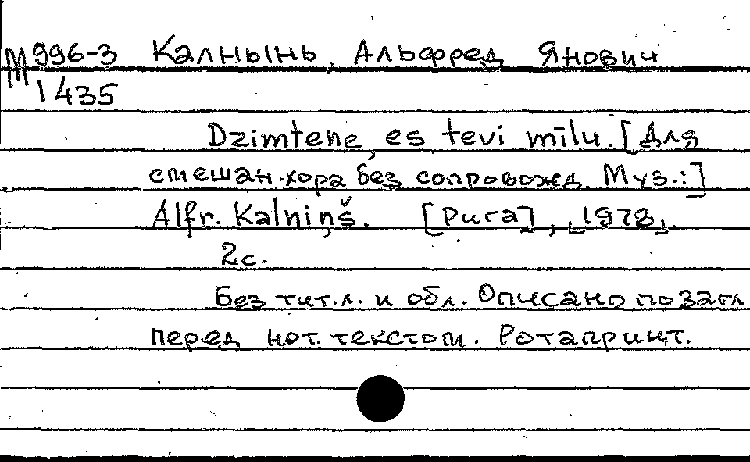 М 996-3 Калнынь, Альфред Янович
1435
Dzimtene, es tevi mīlu. [Для
смешан. хора без сопровожд. Муз.:]
Alfr. Kalniņš. [Рига], 1978.
2с.
Без тит.л. и обл. Описано по загл
перед нот. текстом. Ротапринт.